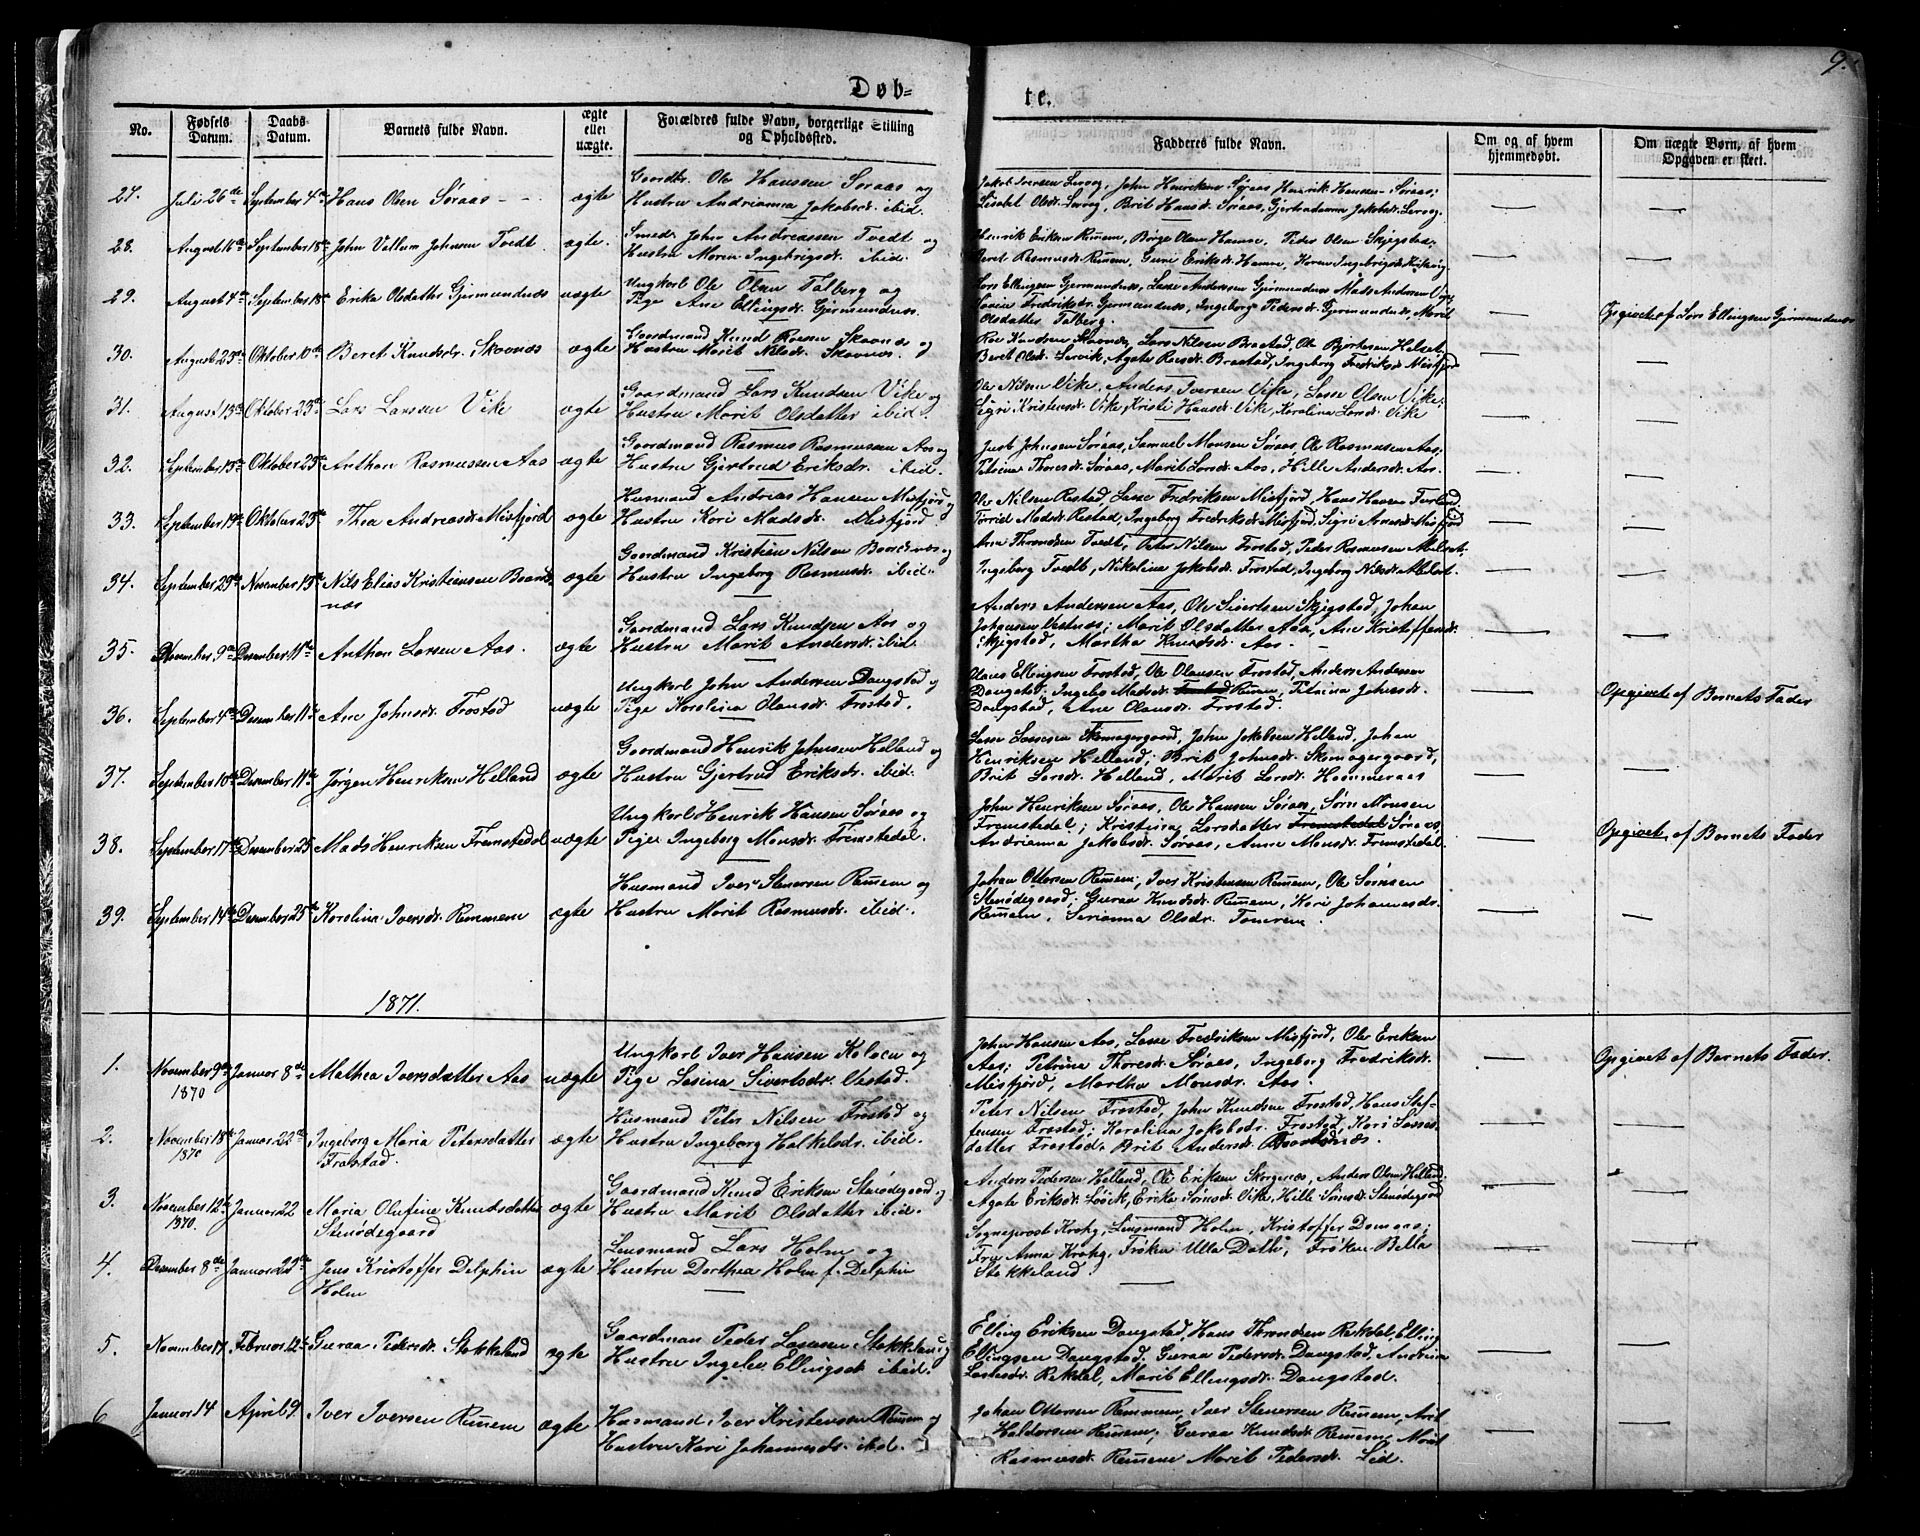 9.
Døb-
te.
No.
Fødsels Datum.
Daabs Datum.
Barnets fulde Navn.
ægte eller uægte.
Forældres fulde Navn, borgerlige Stilling og Opholdssted.
Fadderes fulde Navn.
Om og af hvem hjemmedøbt.
Om uægte Børn, af hvem Opgaven er skeet.
27. Juli 26de September 4de Hans Olsen Søraas ægte
Gaardbr. Ole Hanssen Søraas og
Hustru Andrianna Jakobsdr. ibid.
Jakob Iversen Lervog, John Henriksen Søraas, Henrik Hansen Søraas;
Lisabet Olsdr. Lervog, Brit Hansdr. Søraas, Gjertrudanna Jakobsdr. Lervog.
28. August 16de September 18de John Vellum Johnsen Tvedt ægte.
Smed John Andreassen Tvedt og
Hustru Maren Ingebrigsdr. ibid.
Henrik Eriksen Remem, Børge Olsen Hamne, Peder Olsen Skjegstad;
Beret Rasmusdr. Remem, Guri Eriksdr. Hamne, Karen Ingebrigsdr.
29. August 4de September 18de Erika Olsdatter Gjermundnæs uægte
Ungkarl Ole Olsen Talberg og
Pige Ane Ellingsdr. Gjermundnæs.
Lars Ellingsen Gjermundnæs, Lasse Andersen Gjermundnæs Mads Andersen
Fredriksdr. Gjermundnæs, Ingeborg Pedersdr. Gjermundnæs, Marit
Olsdatter Talberg.
Opgivet af Lars Ellingsen Gjermundnæs
30. August 23de Oktober 10de Beret Knudsdr. Skovnæs ægte
Gaardmand Knud Roesen Skovnæs og
Hustru Marit Nilsdr. Skovnæs.
Roe Knudsen Skovnæs, Lars Nilsen Brastad, Ole Bjørnsen Helset,
Beret Olsdr. Lervik, Agate Roesdr. Brastad, Ingeborg Fredriksdr. Misfjord
31. August 13de Oktober 23de Lars Larsen Vike ægte
Gaardmand Lars Knudsen Vike og
Hustru Marit Olsdatter ibid.
Ole Nilsen Vike, Anders Iversen Vike, Lasse Olsen Vike;
Sigri Kristensdr. Vike, Kristi Hansdr. Vike, Karolina Larsdr. Vike
32. September 15de Oktober 23de Anthon Rasmussen Aas ægte
Gaardmand Rasmus Rasmussen Aas og
Hustru Gjertrud Eriksdr. ibid.
Just Johnsen Søraas, Samuel Monsen Søraas, Ole Rasmusen Aas;
Petrina Thoresdr. Søraas, Marit Larsdr. Aas, Hille Andersdr. Aas.
33. September 19de Oktober 23de Thea Andreasdr. Misfjord ægte
Husmand Andreas Hansen Misfjord og
Hustru Kari Madsdr. Misfjord
Ole Nilsen Restad, Lasse Fredriksen Misfjord, Hans Hansen Furland;
Torrid Madsdr. Restad, Ingeborg Fredriksdr. Misfjord, Sigri Arnesdr. Misfjord
34. September 29de November 13de Nils Elias Kristiensen Baards-
næs ægte
Gaardmand Kristien Nilsen Baardsnæs og
Hustru Ingeborg Rasmusdr. ibid.
Arne Throndsen Tvedt, Peter Nilsen Frostad, Peder Rasmusen Melset;
Ingeborg Tvedt, Nikolina Jakobsdr. Frostad, Ingeborg Nilsdr. Melset.
35. November 9de Desember 11de Anthon Larsen Aas. ægte
Gaardmand Lars Knudsen Aas og
Hustru Marit Andersdr. ibid.
Anders Andersen Aas, Ole Sivertsen Skjegstad, Johan
Johansen Vestnæs; Marit Olsdatter Aas, Ane Kristoffersdr.
Skjegstad, Martha Knudsdr. Aas.
36. September 4de Desember 11de Ane Johnsdr. Frostad uægte
Ungkarl John Andersen Daugstad og
Pige Karolina Olausdr. Frostad.
Claus Ellingsen Frostad, Ole Olausen Frostad, Anders Andersen
Daugstad, Ingeborg Madsdr. Remem, Petrina Johnsdr.
Daugstad, Ane Olausdr. Frostad.
Opgivet af Barnets Fader
37. September 10de Desember 11de Jørgen Henriksen Helland ægte
Gaardmand Henrik Johnsen Helland og
Hustru Gjertrud Eriksdr. ibid.
Lasse Lassesen Skomagergaard, John Jakobsen Helland, Johan
Henriksen Helland; Brit Johnsdr. Skomagergaard,
Brit Larsdr. Helland, Marit Larsdr. Hammeraas
38. September 17de Desember 25de Mads Henriksen Fremstedal uægte
Ungkarl Henrik Hansen Søraas og
Pige Ingeborg Monsdr. Fremstedal.
John Henriksen Søraas, Ole Hansen Søraas, Sørn Monsen
Fremstedal; Kristina Larsdatter Fremstedal Søraas,
Andrianna Jakobsdr. Søraas, Anne Monsdr. Fremstedal.
Opgivet af Barnets Fader
39. September 14de Desember 25de Karolina Iversdr. Remmem ægte
Husmand Iver Stenersen Remem og
Hustru Marit Rasmusdr. ibid.
Johan Ottersen Remem, Iver Kristensen Remem, Ole Sørnsen
Stenødegaard; Guraa Knudsdr. Remem, Kari Johannesdr.
Remem, Serianna Olsdr.
1871.
1. November 9de 1870 Januar 8de Mathea Iversdatter Aas uægte
Ungkarl Iver Hansen og
Pige Lasina Sivertsdr. Vestad.
John Hansen Aas, Lasse Fredriksen Misfjord, Ole Eriksen
Aas; Petrina Thoresdr. Søraas, Ingeborg Fredriksdr.
Misfjord, Martha Monsdr. Aas.
Opgivet af Barnets Fader.
2. November 18de 1870 Januar 22de Ingeborg Maria Petersdatter
Frostad. ægte
Husmand Peter Nilsen Frostad og
Hustru Ingeborg Halkelsdr. ibid.
Peter Nilsen Frostad, John Knudsen Frostad, Hans Stef-
fensen Frostad; Karolina Jakobsdr. Frostad, Kari Lasse-
datter Frostad, Brit Andersdr. Baardsnæs.
3. November 12te 1870. Januar 22 Maria Olufine Knudsdatter
Stenødegaard ægte
Gaardmand Knud Eriksen Stenødegaard og
Hustru Marit Olsdatter ibid.
Anders Pedersen Helland, Ole Eriksen Skorgenæs, Anders Olsen Helland.
Agate Eriksdr. Løvik, Erika Sørnsdr. Vike, Hille Sørnsdr. Stenødegaard
4. Desember 8de Januar 22de Jens Kristoffer Delphin
Holm ægte
Lensmand Lars Holm og
Hustru Dorthea Holm f. Delphin
Sogneprost Krohg, Lensmand Holm, Kristoffer Domaas;
Fru Anna Krohg, Frøken Ulla Dath, Frøken Bella
Stokkeland.
5. November 17 Februar 12te Guraa Pedersdr. Stokkeland ægte
Gaardman Peder Lassesen Stokkeland og
Hustru Ingelev Ellingsdr. ibid.
Elling Eriksen Daugstad, Hans Throndsen Rekdal, Elling
Ellingsen Daugstad, Guraa Pedersdr. Daugstad, Andrina
Lassesdr. Rekdal, Marit Ellingsdr. Daugstad.
6 Januar 14 April 9. Iver Iversen Remem ægte
Husmand Iver Kristensen Remem og
Hustru Kari Johannesdr. ibid.
Johan Ottersen Remmem, Iver Stenersen Remem, Arit
Haldorsen Remem; Guraa Knudsdr. Remem, Marit
Rasmusdr. Remem Marit Pedersdr. Lid.